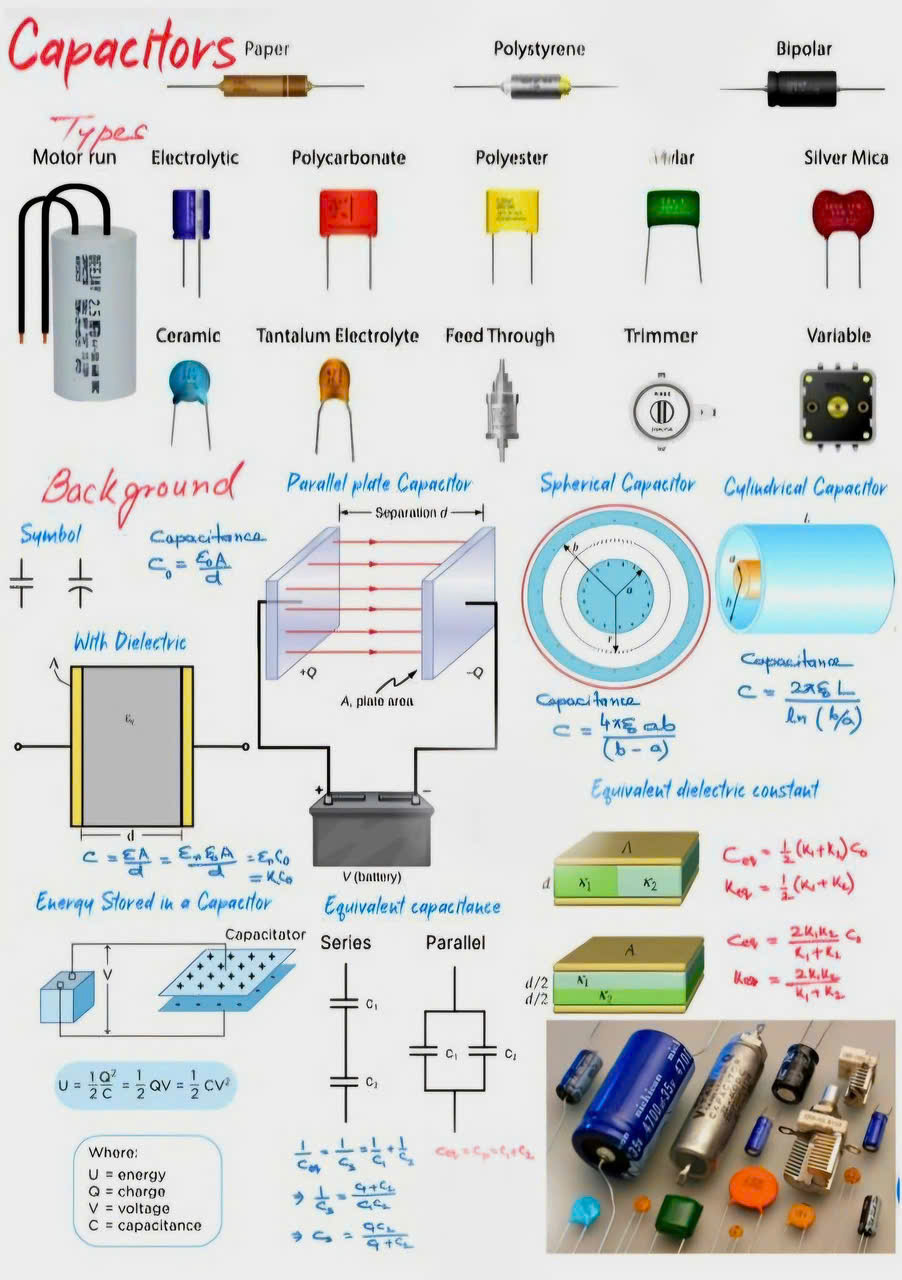 Capacitors
Paper
Polystyrene
Bipolar
Types
Motor run
Electrolytic
Polycarbonate
Polyester
Silver Mica
2.5
Ceramic
Tantalum Electrolyte
Feed Through
Trimmer
Variable
Background
Symbol
Capacitance
C₀ = ε₀A/d
Parallel plate Capacitor
Separation d
+Q
−Q
A, plate area
+
−
V (battery)
Spherical Capacitor
b
a
r
Capacitance
C = 4πε₀ab/(b − a)
Cylindrical Capacitor
L
a
b
Capacitance
C = 2πε₀L/ln(b/a)
With Dielectric
A
εᵣ
d
C = εA/d = εᵣε₀A/d = εᵣC₀
= KC₀
Equivalent dielectric constant
A
d
K₁ K₂
Ceq = 1/2 (K₁+K₂) C₀
Keq = 1/2 (K₁+K₂)
A
d/2
d/2
K₁
K₂
Ceq = 2K₁K₂/K₁+K₂ C₀
Keq = 2K₁K₂/K₁+K₂
Energy Stored in a Capacitor
Capacitator
V
U = 1/2 Q²/C = 1/2 QV = 1/2 CV²
Where:
U = energy
Q = charge
V = voltage
C = capacitance
Equivalent capacitance
Series
Parallel
C₁
C₂
C₁
C₂
1/Ceq = 1/Cs = 1/C₁ + 1/C₂
⇒ 1/Cs = C₁+C₂/C₁C₂
⇒ Cs = C₁C₂/C₁+C₂
Ceq = Cp = C₁+C₂
nichicon
4700µF 35v
35v